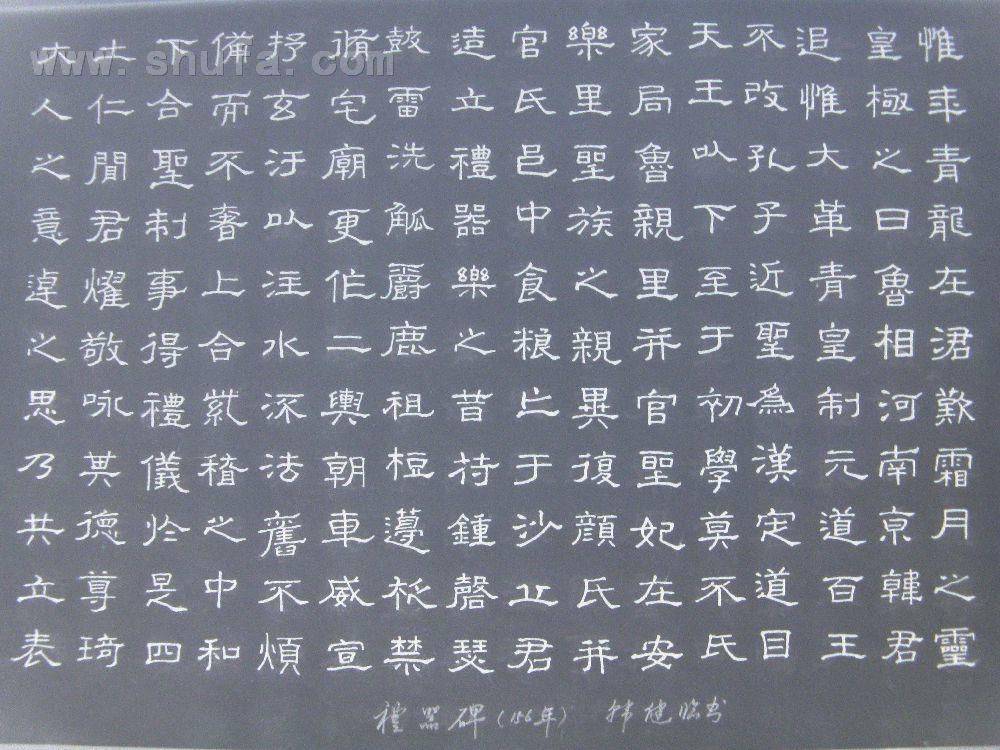 惟年青龍在涒歎霜月之靈
皇極之日魯相河南京韓君
追惟大革青皇制元道百王
不改孔子近聖為漢定道目
天王以下至于初學莫不氏
家局魯親里并官聖妃在安
樂里聖族之親異復顏氏并
官氏邑中食粮亡于沙丘君
造立禮器樂之昔苻鍾磬瑟
鼓雷洗觚爵鹿祖梪籩柉禁
脩宅廟更作二輿朝車威宣
抒玄汙以注水流法舊不煩
備而不奢上合紫稽之中和
下合聖制事得禮儀於是四
士仁聞君耀敬咏其德尊琦
大人之意逴之思乃共立表
禮器碑(156年) 韩健临书
www.shufa.com